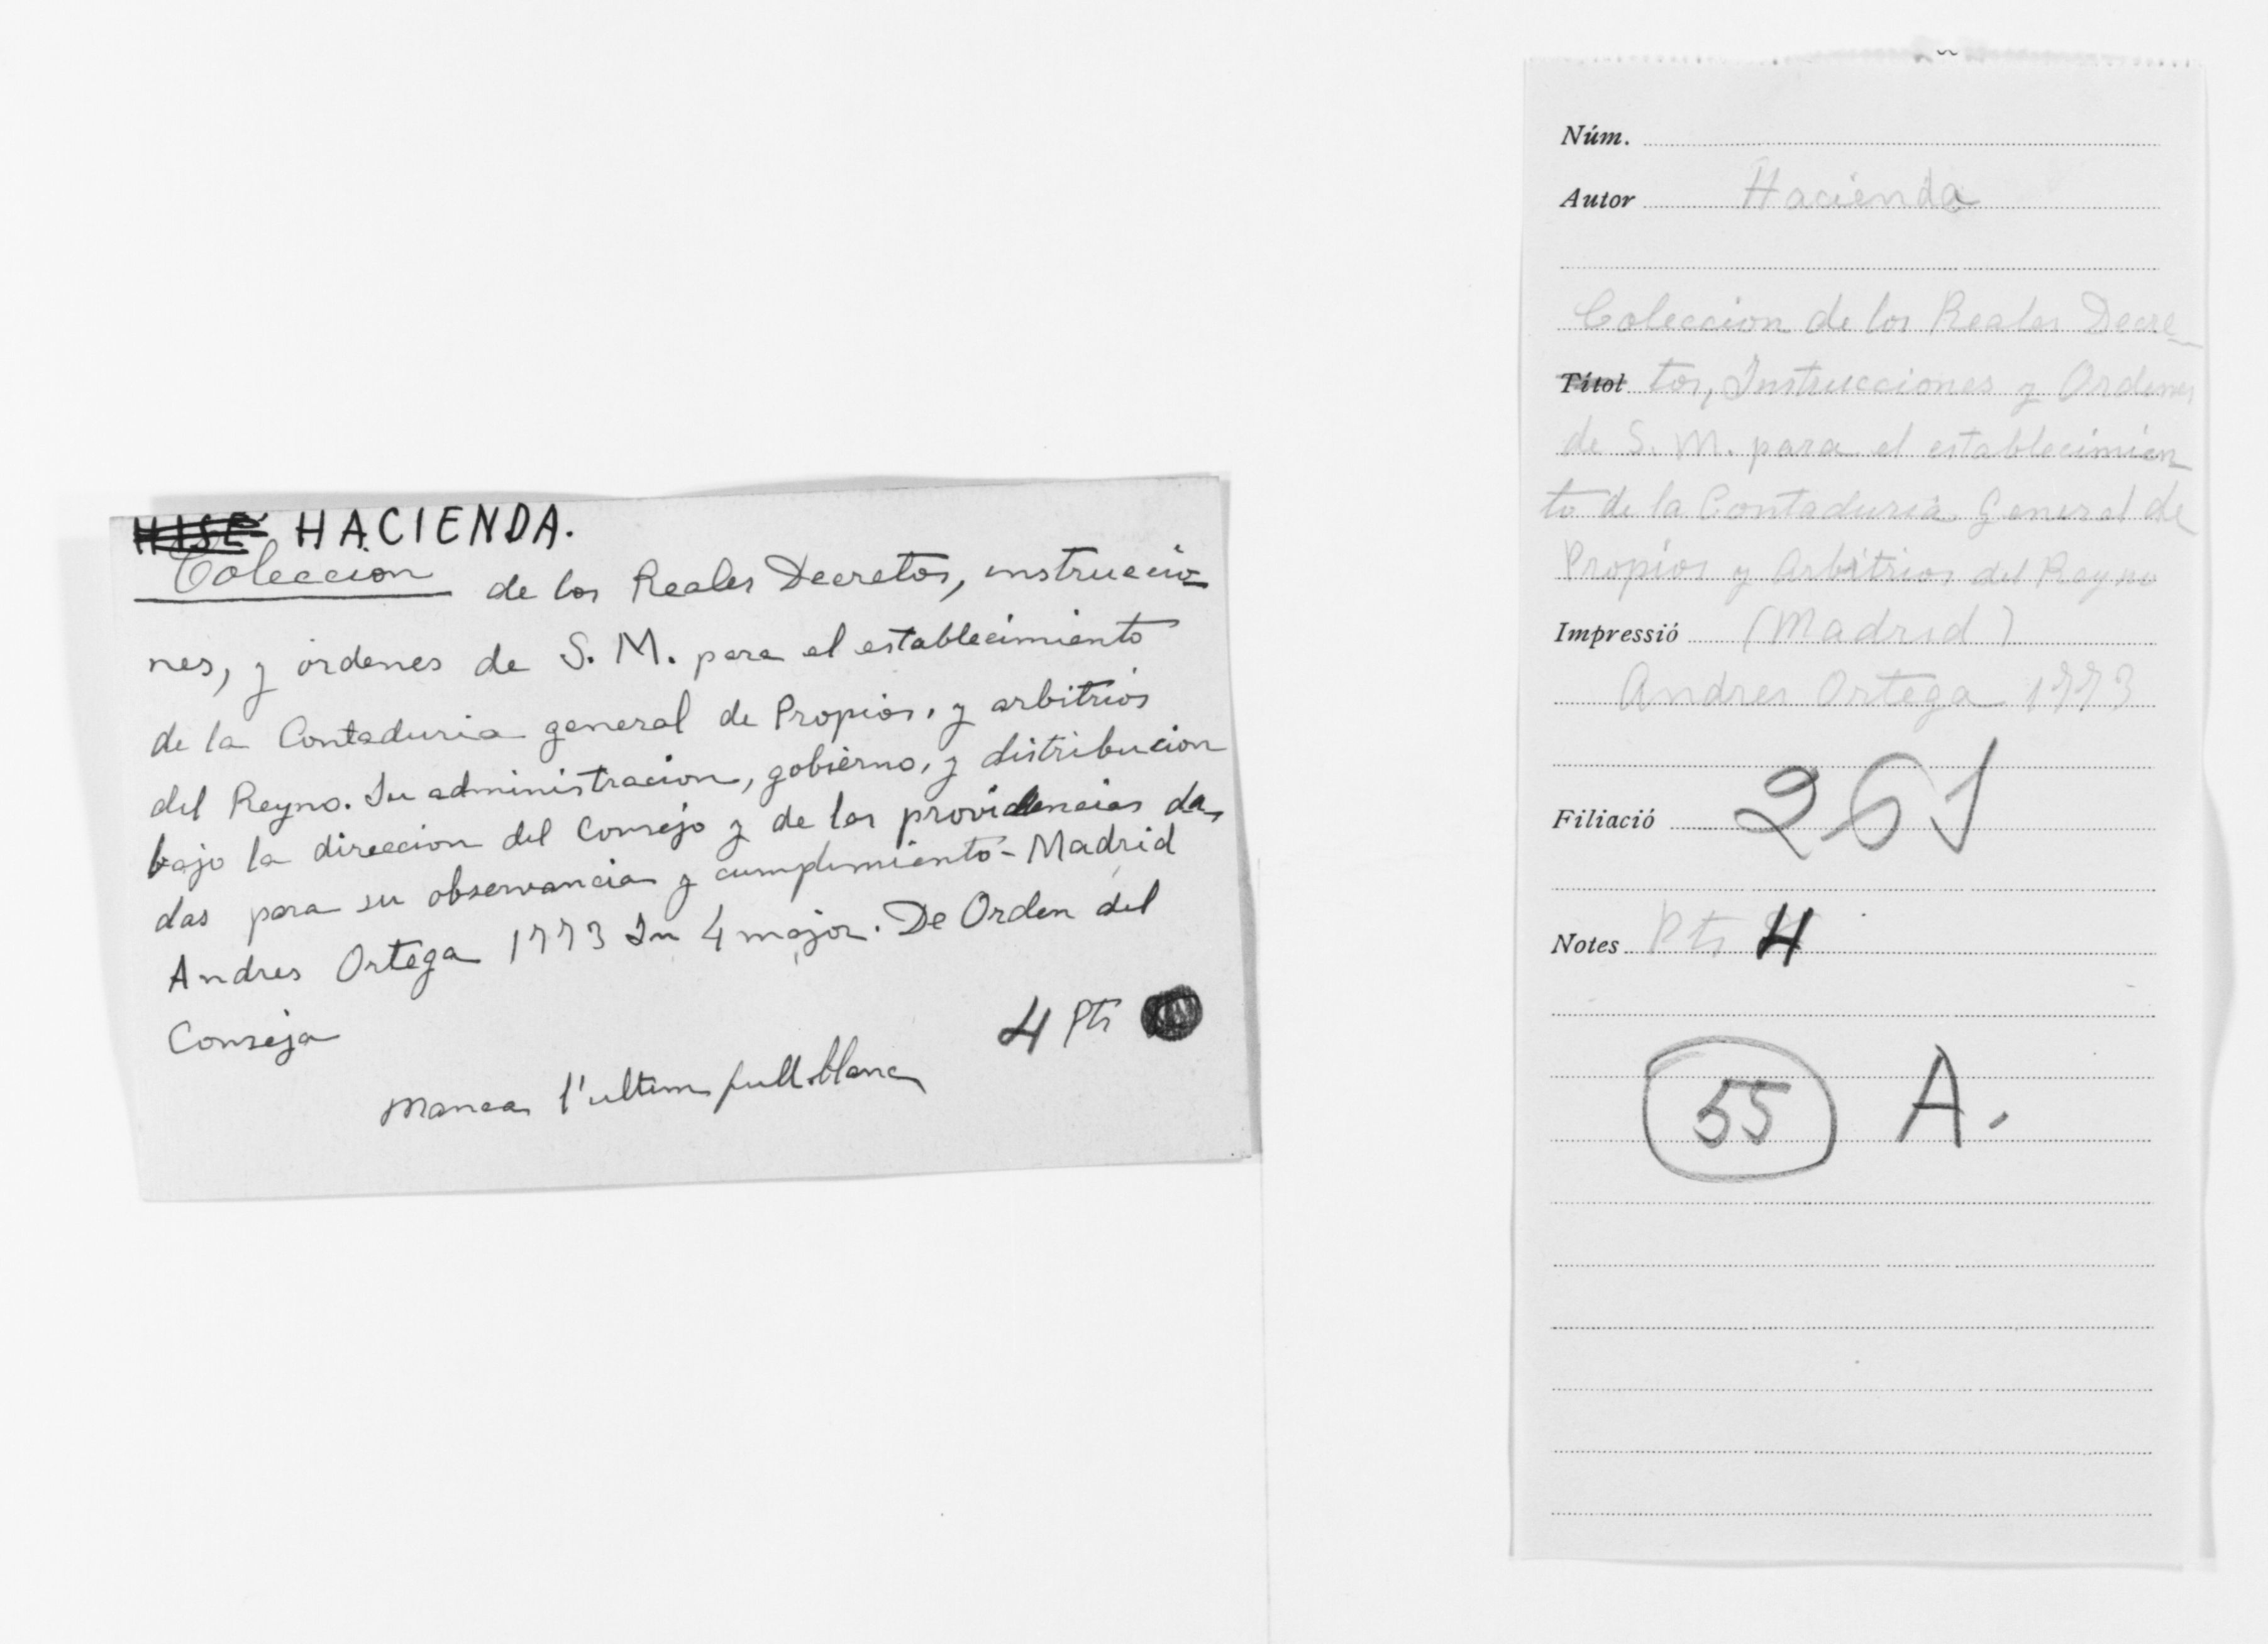 HACIENDA.
Coleccion de los Reales Decretos, instruccio-
nes, y órdenes de S. M. para el establecimiento
de la Contaduria general de Propios, y arbitrios
del Reyno. Su administracion, gobierno, y distribucion
bajo la direccion del Consejo y de las providencias da-
das para su observancia y cumplimiento - Madrid
Andres Ortega 1773 In 4 major. De Orden del
Conseja
4 Pts
Manca l'ultim full blanc
Núm.
Autor Hacienda
Coleccion de los Reales Decre-
Títol tos, Instrucciones y Ordenes
de S. M. para el establecimien
to de la Contaduria General de
Propios y Arbitrios del Reyno
Impressió (Madrid)
Andres Ortega 1773
Filiació 261
Notes Pts 4
55 A.